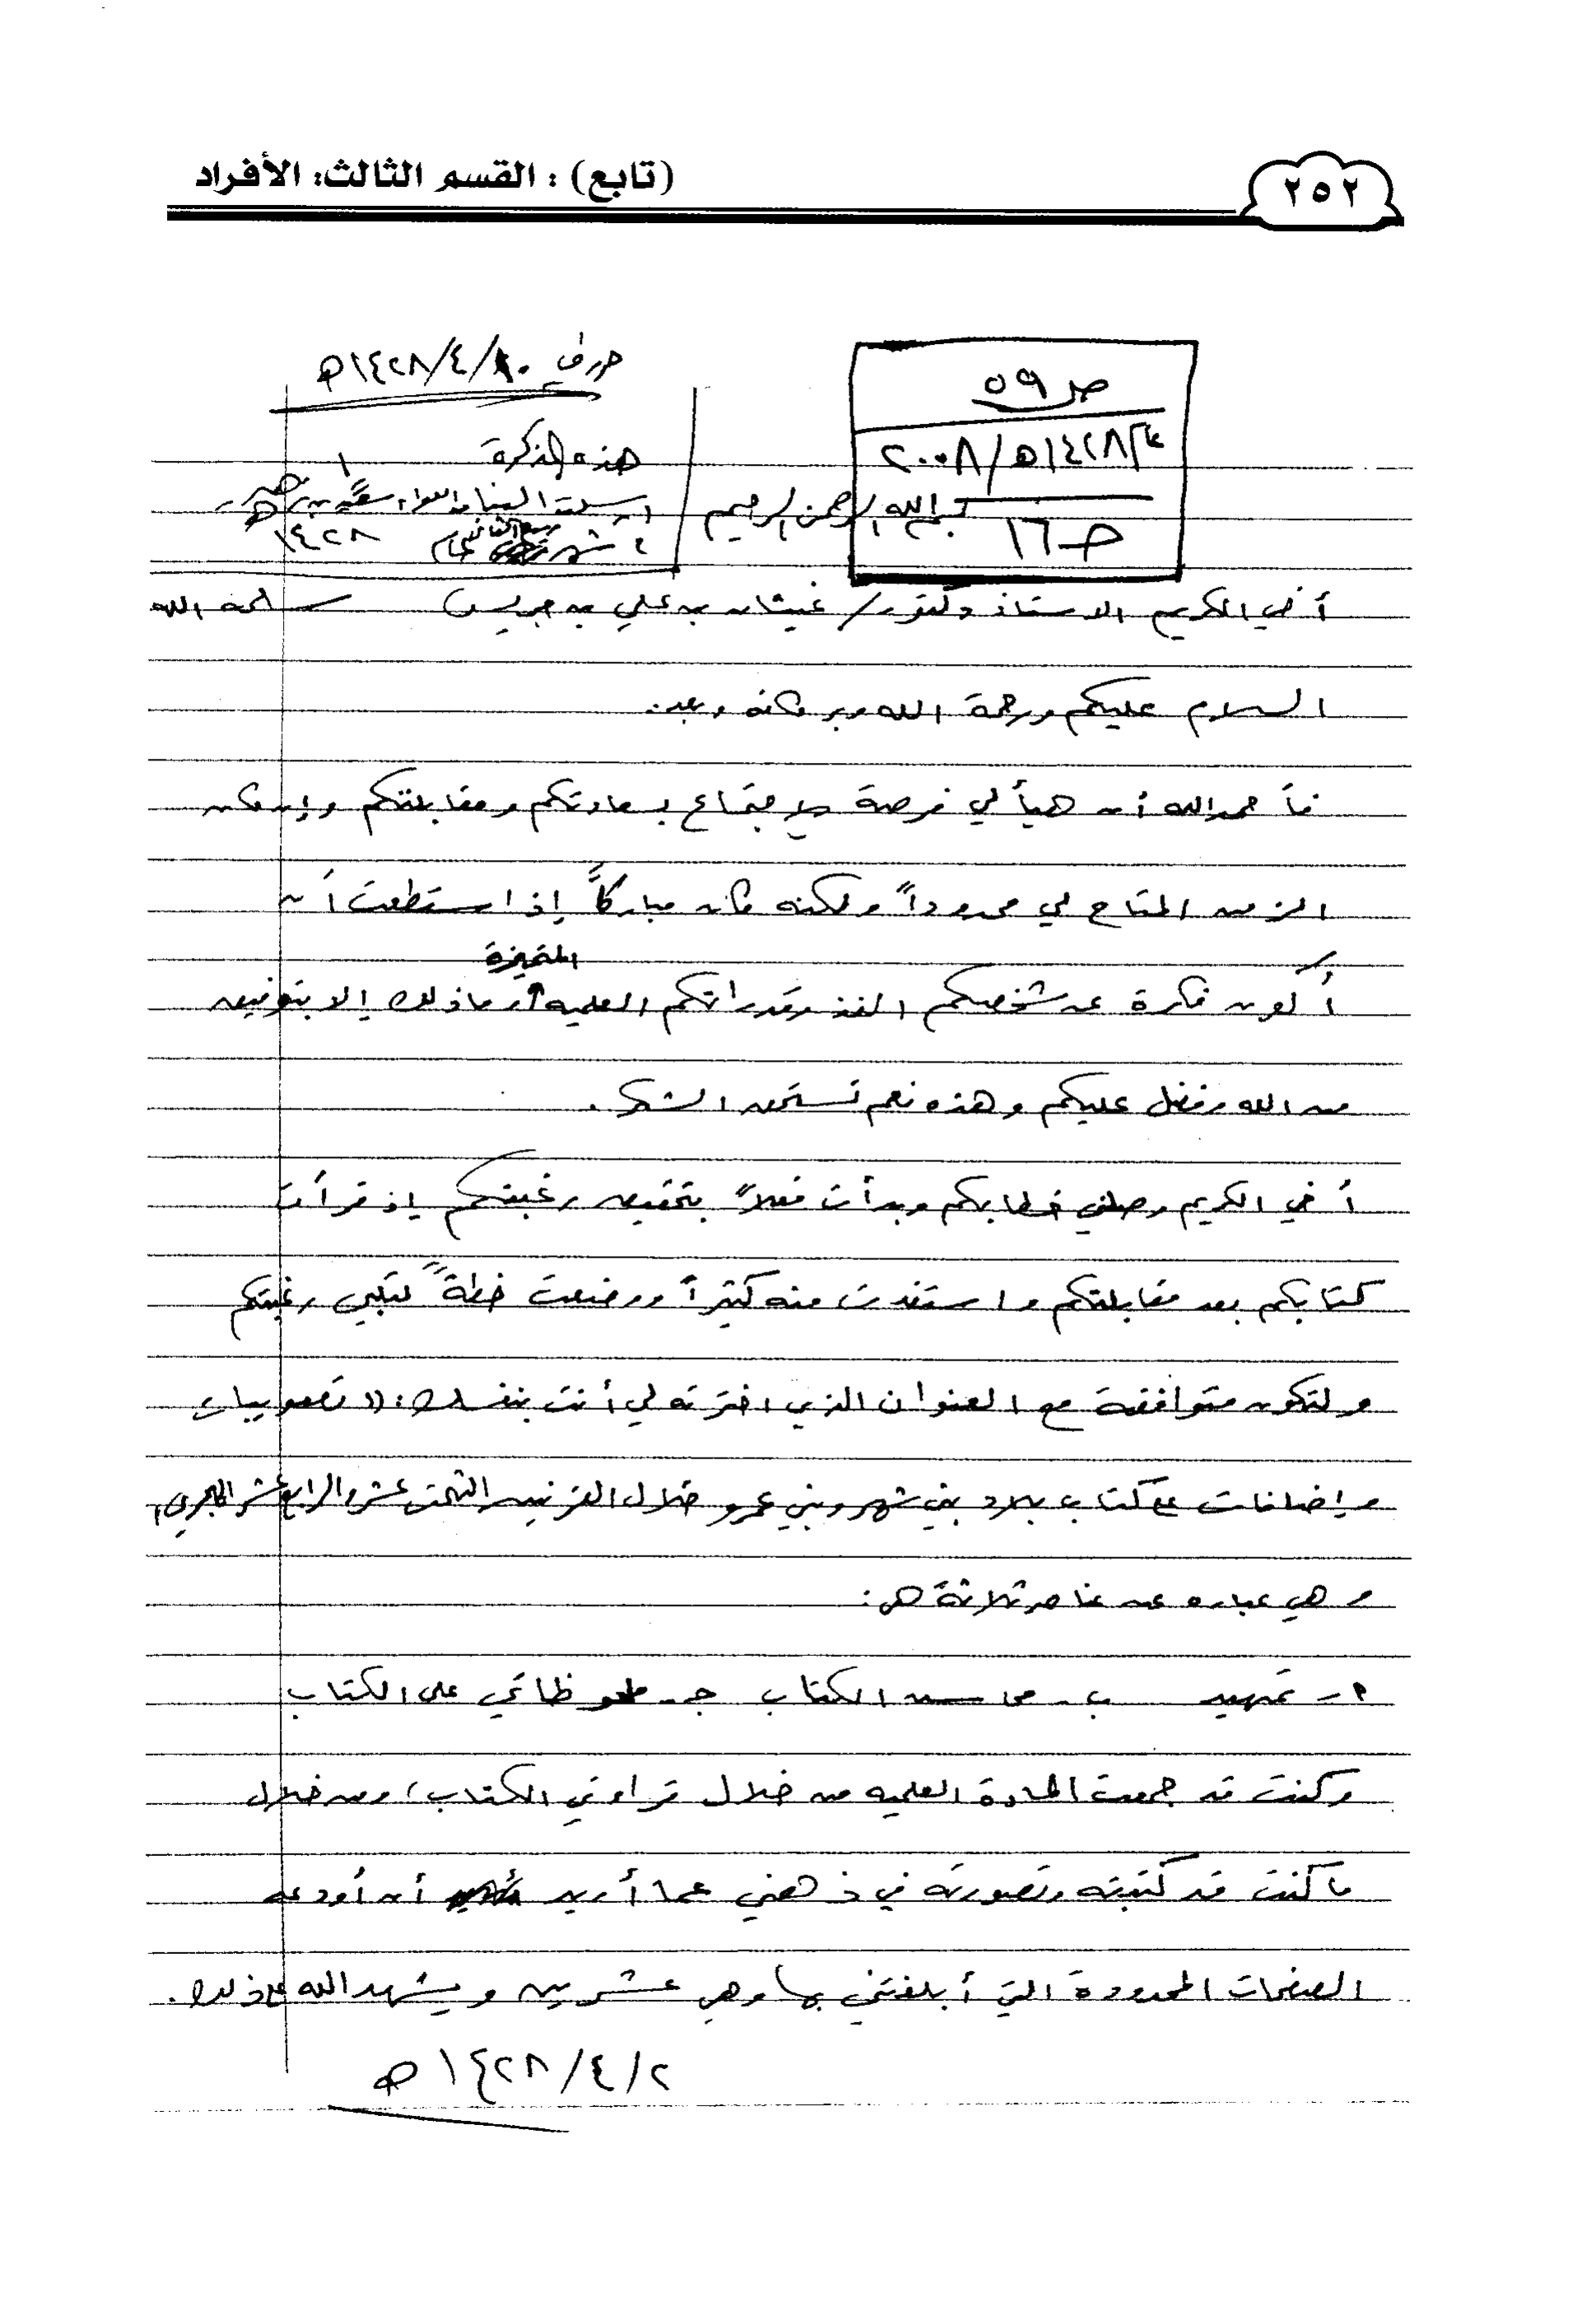 ٢٥٢
(تابع) : القسم الثالث: الأفراد
ص ٥٩
١٤٢٨هـ/٢٠٠٨
ص ١٦
حرر في ١٠/٤/١٤٢٨هـ
هذه المذكرة
ربيع الثاني
شهر عام ١٤٢٨هـ
بسم الله الرحمن الرحيم
أخي الكريم الاستاذ دكتور/ غيثان بن علي بن جريس سلمه الله
السلام عليكم ورحمة الله وبركاته وبعد.
فأحمد الله أن هيأ لي فرصة الاجتماع بسعادتكم ومقابلتكم وإن كان
الزمن المتاح لي محدوداً ولكنه كان مباركاً إذ استطعت أن
المتميزة
أكون فكرة عن شخصكم الفذ وقدراتكم العلميه وما ذلك إلا بتوفيق
من الله وفضل عليكم وهذه نعم تستحق الشكر.
أخي الكريم وصلني خطابكم وبدأت فعلاً بتحقيق رغبتكم إذ قرأت
كتابكم بعد مقابلتكم واستفدت منه كثيراً ووضعت خطةً لتلبي رغبتكم
ولتكون متوافقة مع العنوان الذي اخترته لي أنت بنفسك: (( تصويبات
وإضافات على كتاب بلاد بني شهر وبني عمرو خلال القرنين الثالث عشر والرابع عشر الهجري))
وهي عباره عن عناصر ثلاثة هي:
أ - تمهيد ب - محاسن الكتاب جـ - ملحوظاتي على الكتاب
وكنت قد جمعت المادة العلميه من خلال قراءتي الكتاب، ومن خلال
ما كنت قد كتبته وتصورته في ذهني عما أريد أن أودعه
الصفحات المحدودة التي أبلغتني بها وهي عشرين ويشهد الله على ذلك.
٢/٤/١٤٢٨هـ